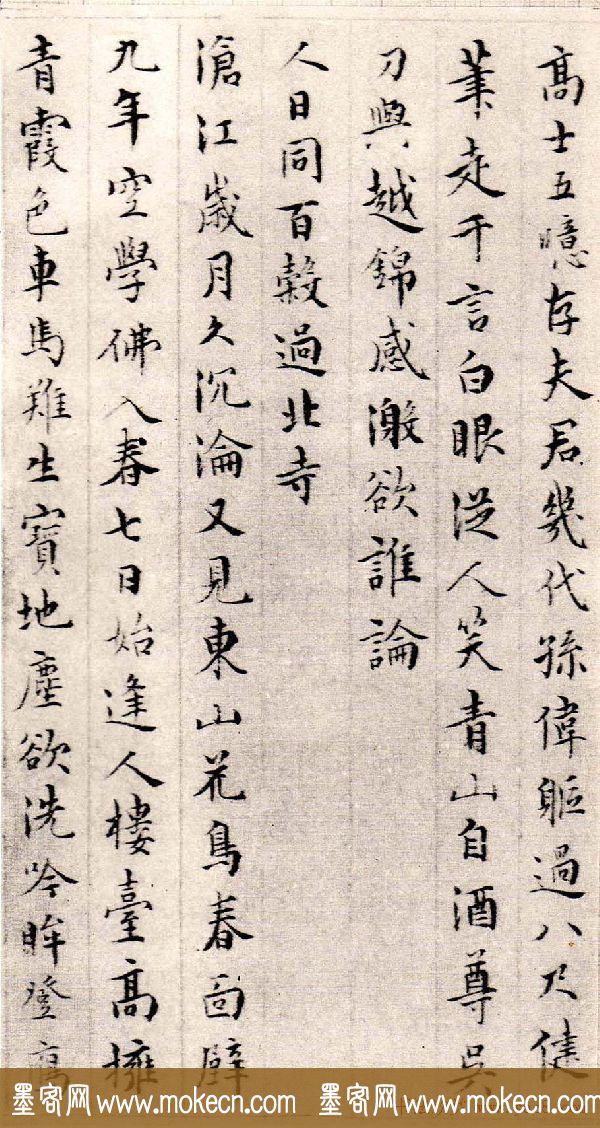 高士五噫存夫君幾代孫偉軀過八尺健
筆走千言白眼從人笑青山自酒尊吳
刀與越錦感激欲誰論
人日同百穀過北寺
滄江歲月久沉淪又見東山花鳥春面壁
九年空學佛入春七日始逢人樓臺高擁
青霞色車馬難生寶地塵欲洗吟眸登高
墨客网 www.mokecn.com 墨客网 www.mokecn.com